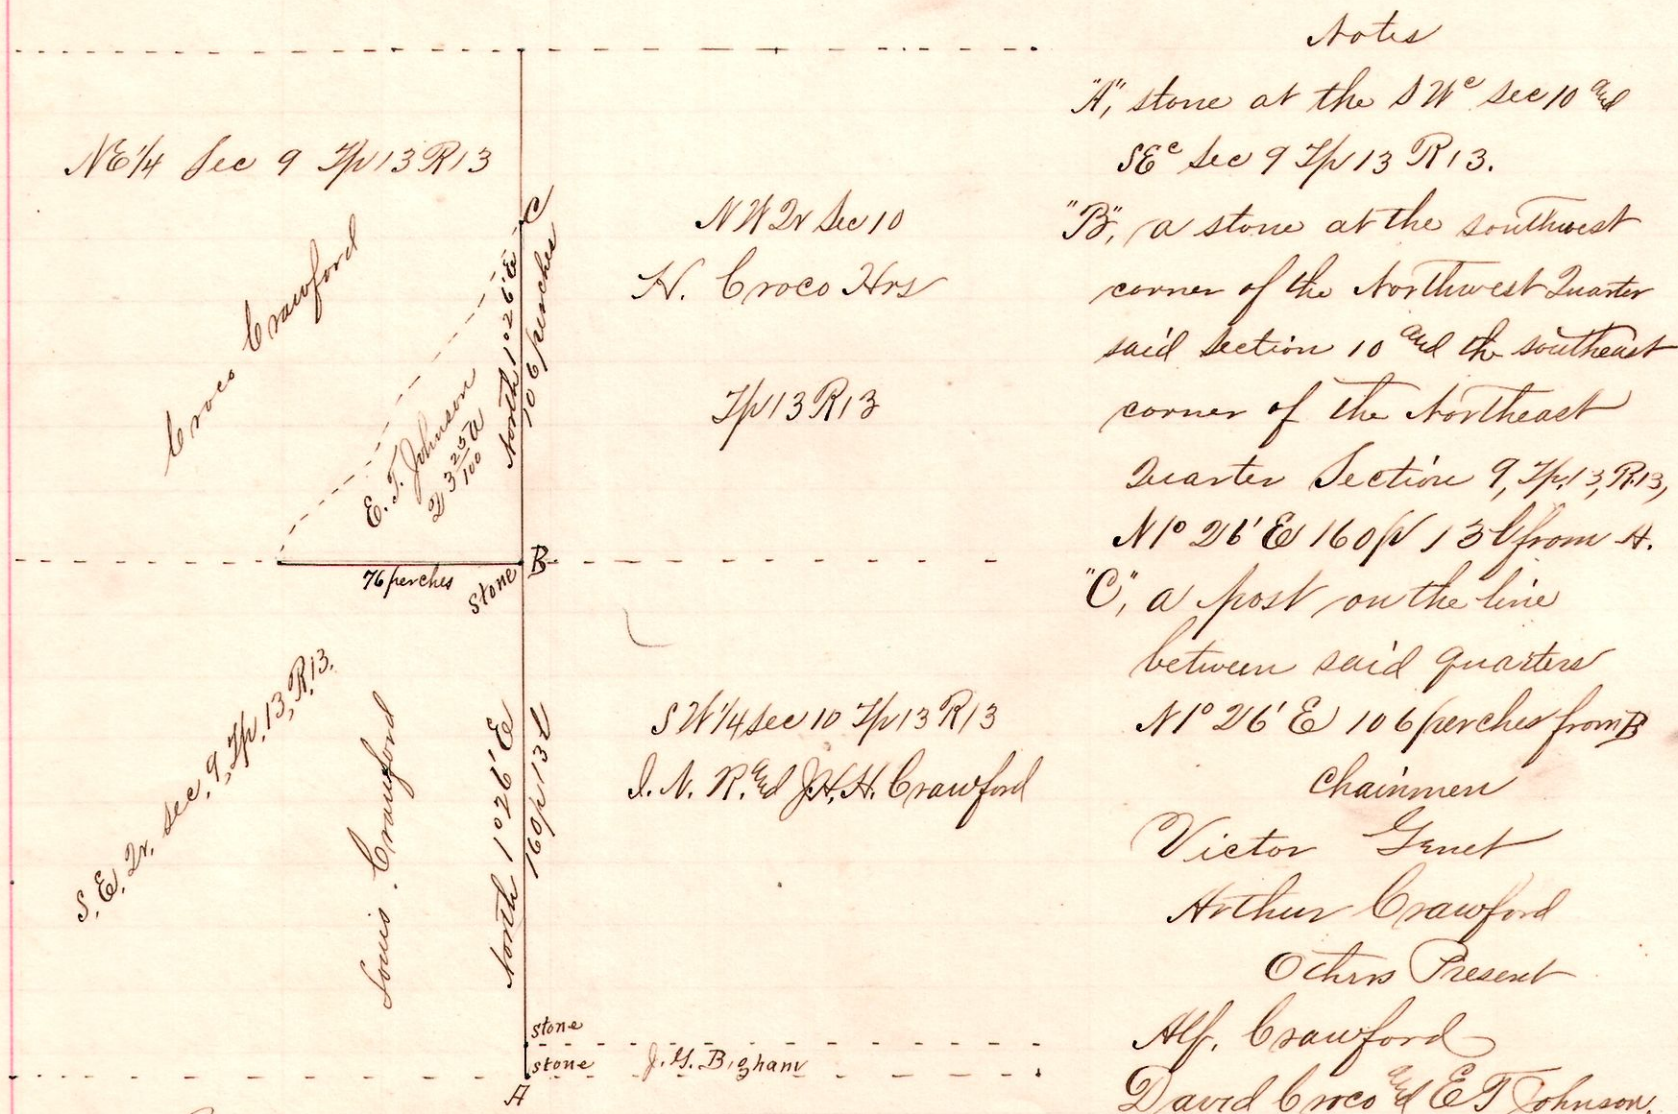 NE 1/4 Sec 9 Tp 13 R 13
Croco Crawford
E. T. Johnson
23 25/100 a
North 1° 26' E
106 perches
C
76 perches
stone
B
S. E. Qr. sec. 9, Tp. 13, R. 13.
Louis Crawford
North 1° 26' E
160 p 13 l
stone
stone
A
NW Qr Sec 10
H. Croco Hrs
Tp 13 R 13
SW 1/4 sec 10 Tp 13 R 13
I. N. R. and J. H. H. Crawford
J. G. Bigham
Notes
"A", stone at the S Wc Sec 10 and
SEc Sec 9 Tp 13 R 13.
"B", a stone at the southwest
corner of the Northwest Quarter
said section 10 and the southeast
corner of the Northeast
Quarter Section 9, Tp. 13, R. 13,
N 1° 26' E 160 p 13 l from A.
"C", a post on the line
between said quarters
N 1° 26' E 106 perches from B
Chainmen
Victor Genet
Arthur Crawford
Others Present
Alf. Crawford
David Croco and E T Johnson.